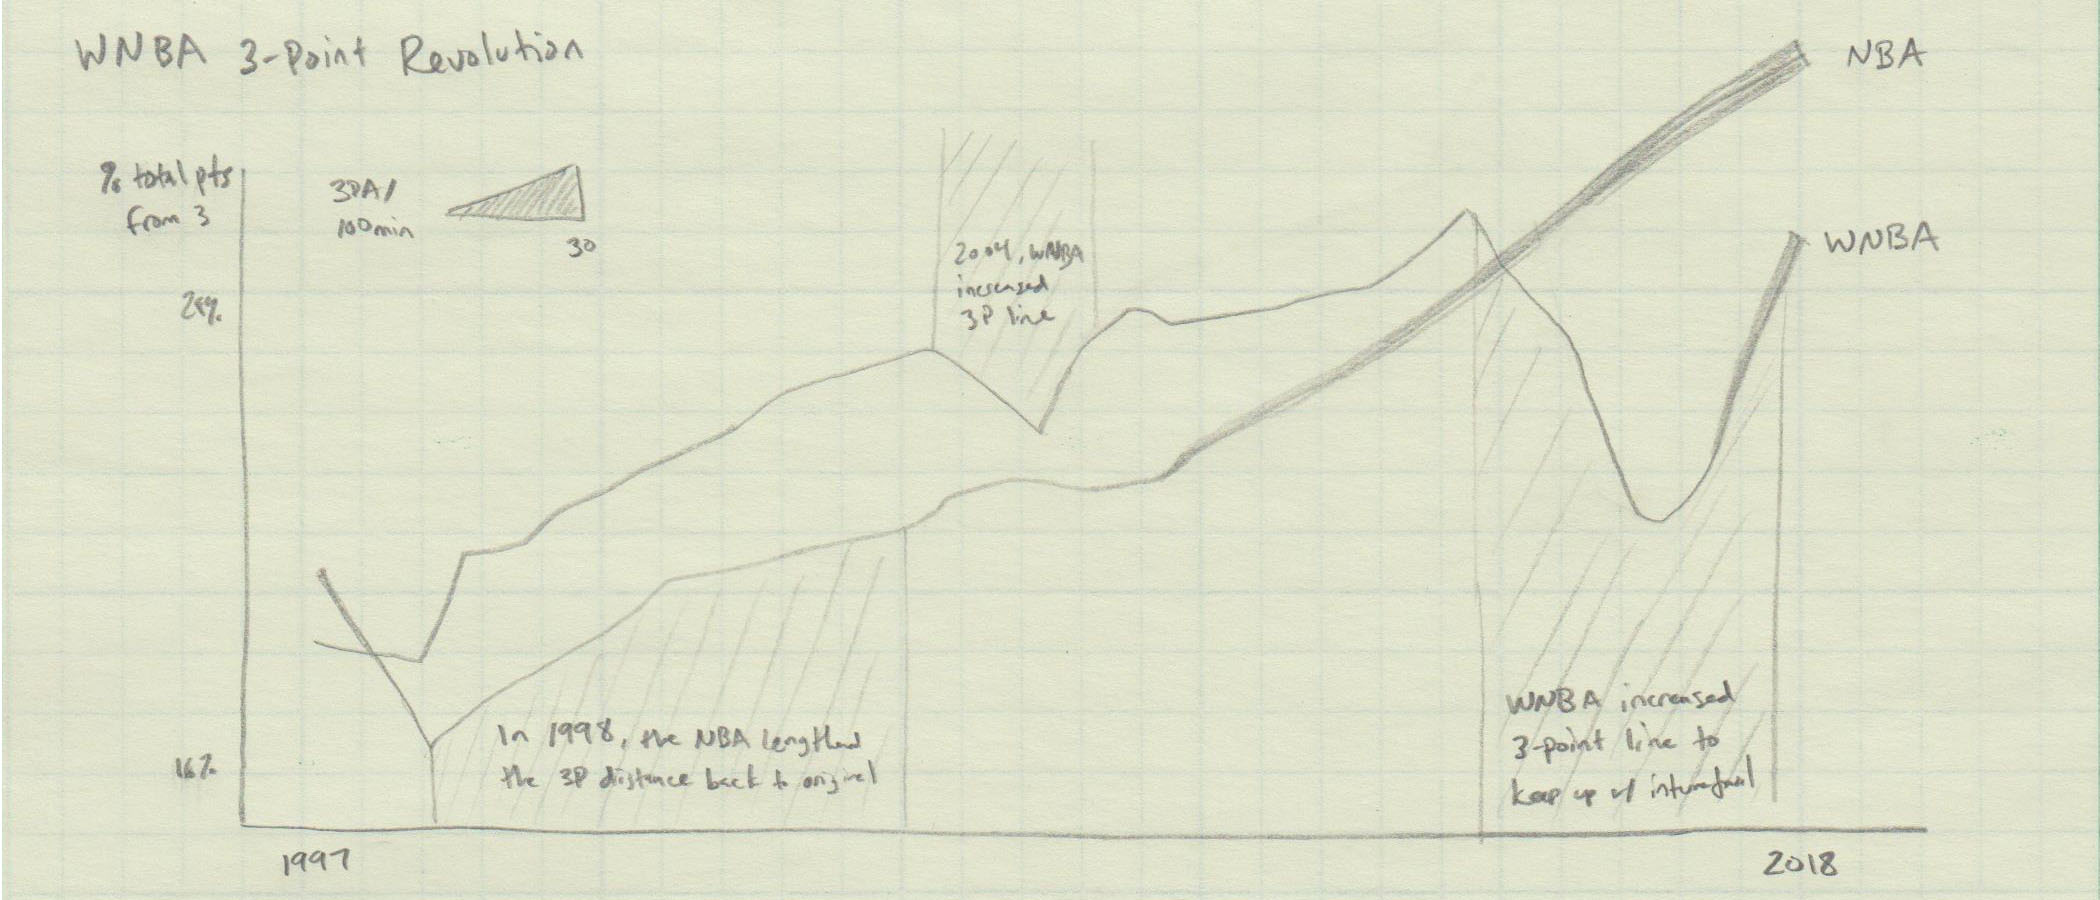 WNBA 3-Point Revolution
NBA
% total pts
from 3
3PA/
100min
30
WNBA
2004, WNBA
increased
3P line
24%
In 1998, the NBA
the 3P distance back to original
WNBA increased
3-point line to
keep up w/
16%
1997
2018